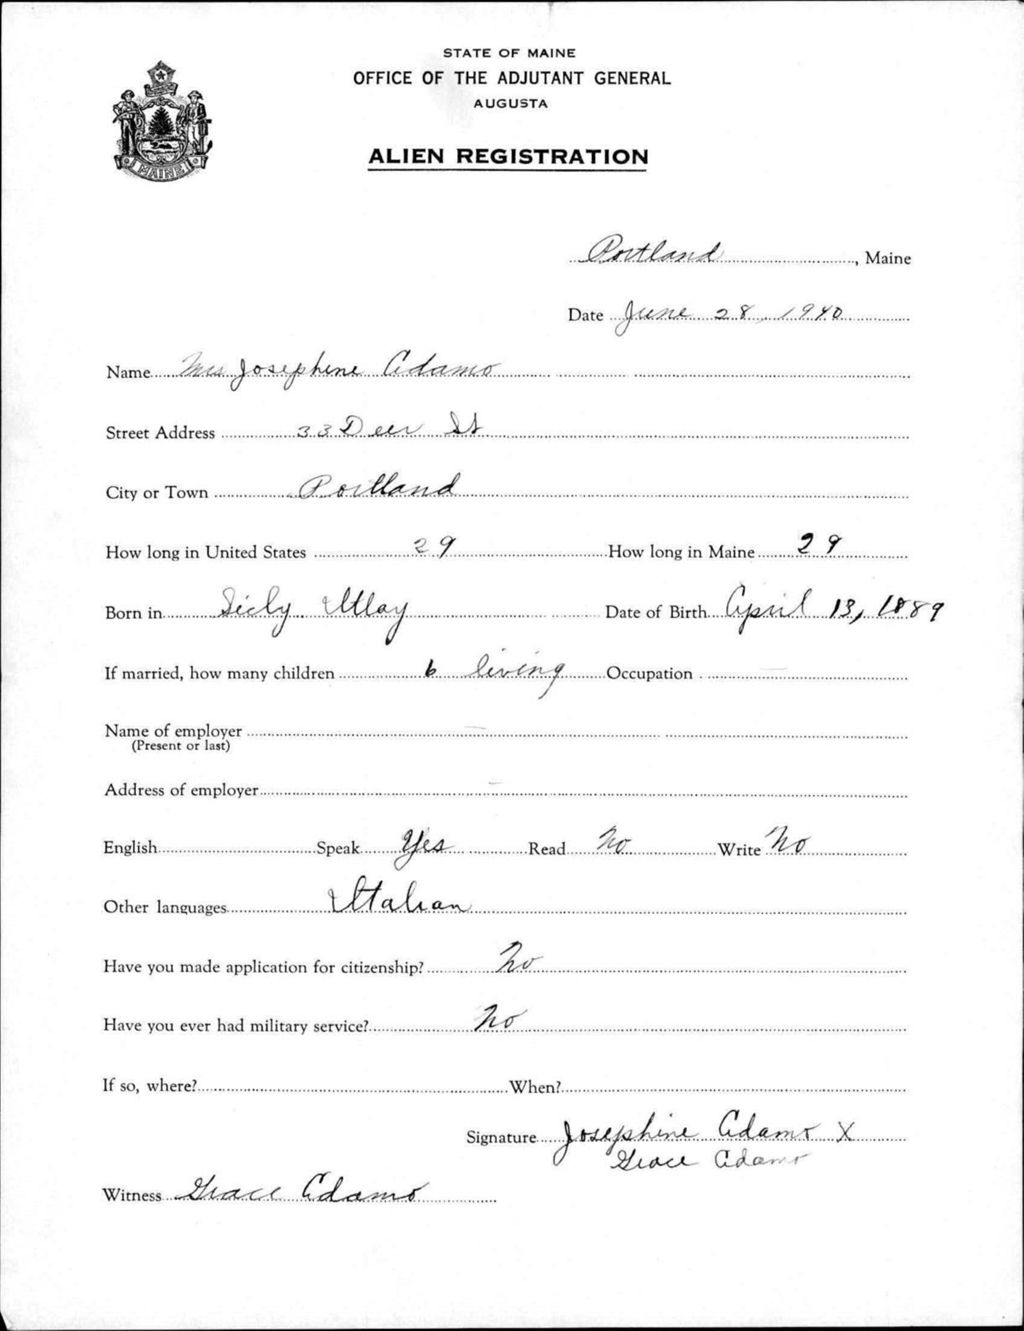 STATE OF MAINE
OFFICE OF THE ADJUTANT GENERAL
AUGUSTA
ALIEN REGISTRATION
MAINE
Portland, Maine
Date June 28, 1940
Name Mrs Josephine Adamo
Street Address 33 Deer St
City or Town Portland
How long in United States 29 How long in Maine 29
Born in Sicly Italy Date of Birth April 13, 1889
If married, how many children 6 living Occupation —
Name of employer —
(Present or last)
Address of employer —
English Speak Yes Read No Write No
Other languages Italian
Have you made application for citizenship? No
Have you ever had military service? No
If so, where? When?
Signature Josephine Adamo X
Grace Adamo
Witness Grace Adamo